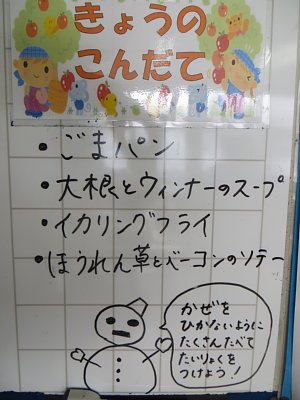 きょうの
こんだて
・ごまパン
・大根とウィンナーのスープ
・イカリングフライ
・ほうれん草とベーコンのソテー
かぜを
ひかないように
たくさんたべて
たいりょくを
つけよう!